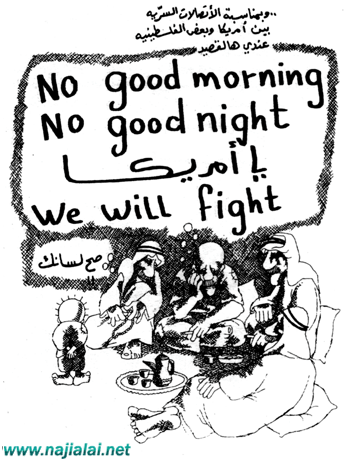 ..وبمناسبة الأتصالات السريه
بين أمريكا وبعض الفلسطينيه
عندي هالقصيد
No good morning
No good night
يا أمريكا
We will fight
صح لسانك
www.najialali.net